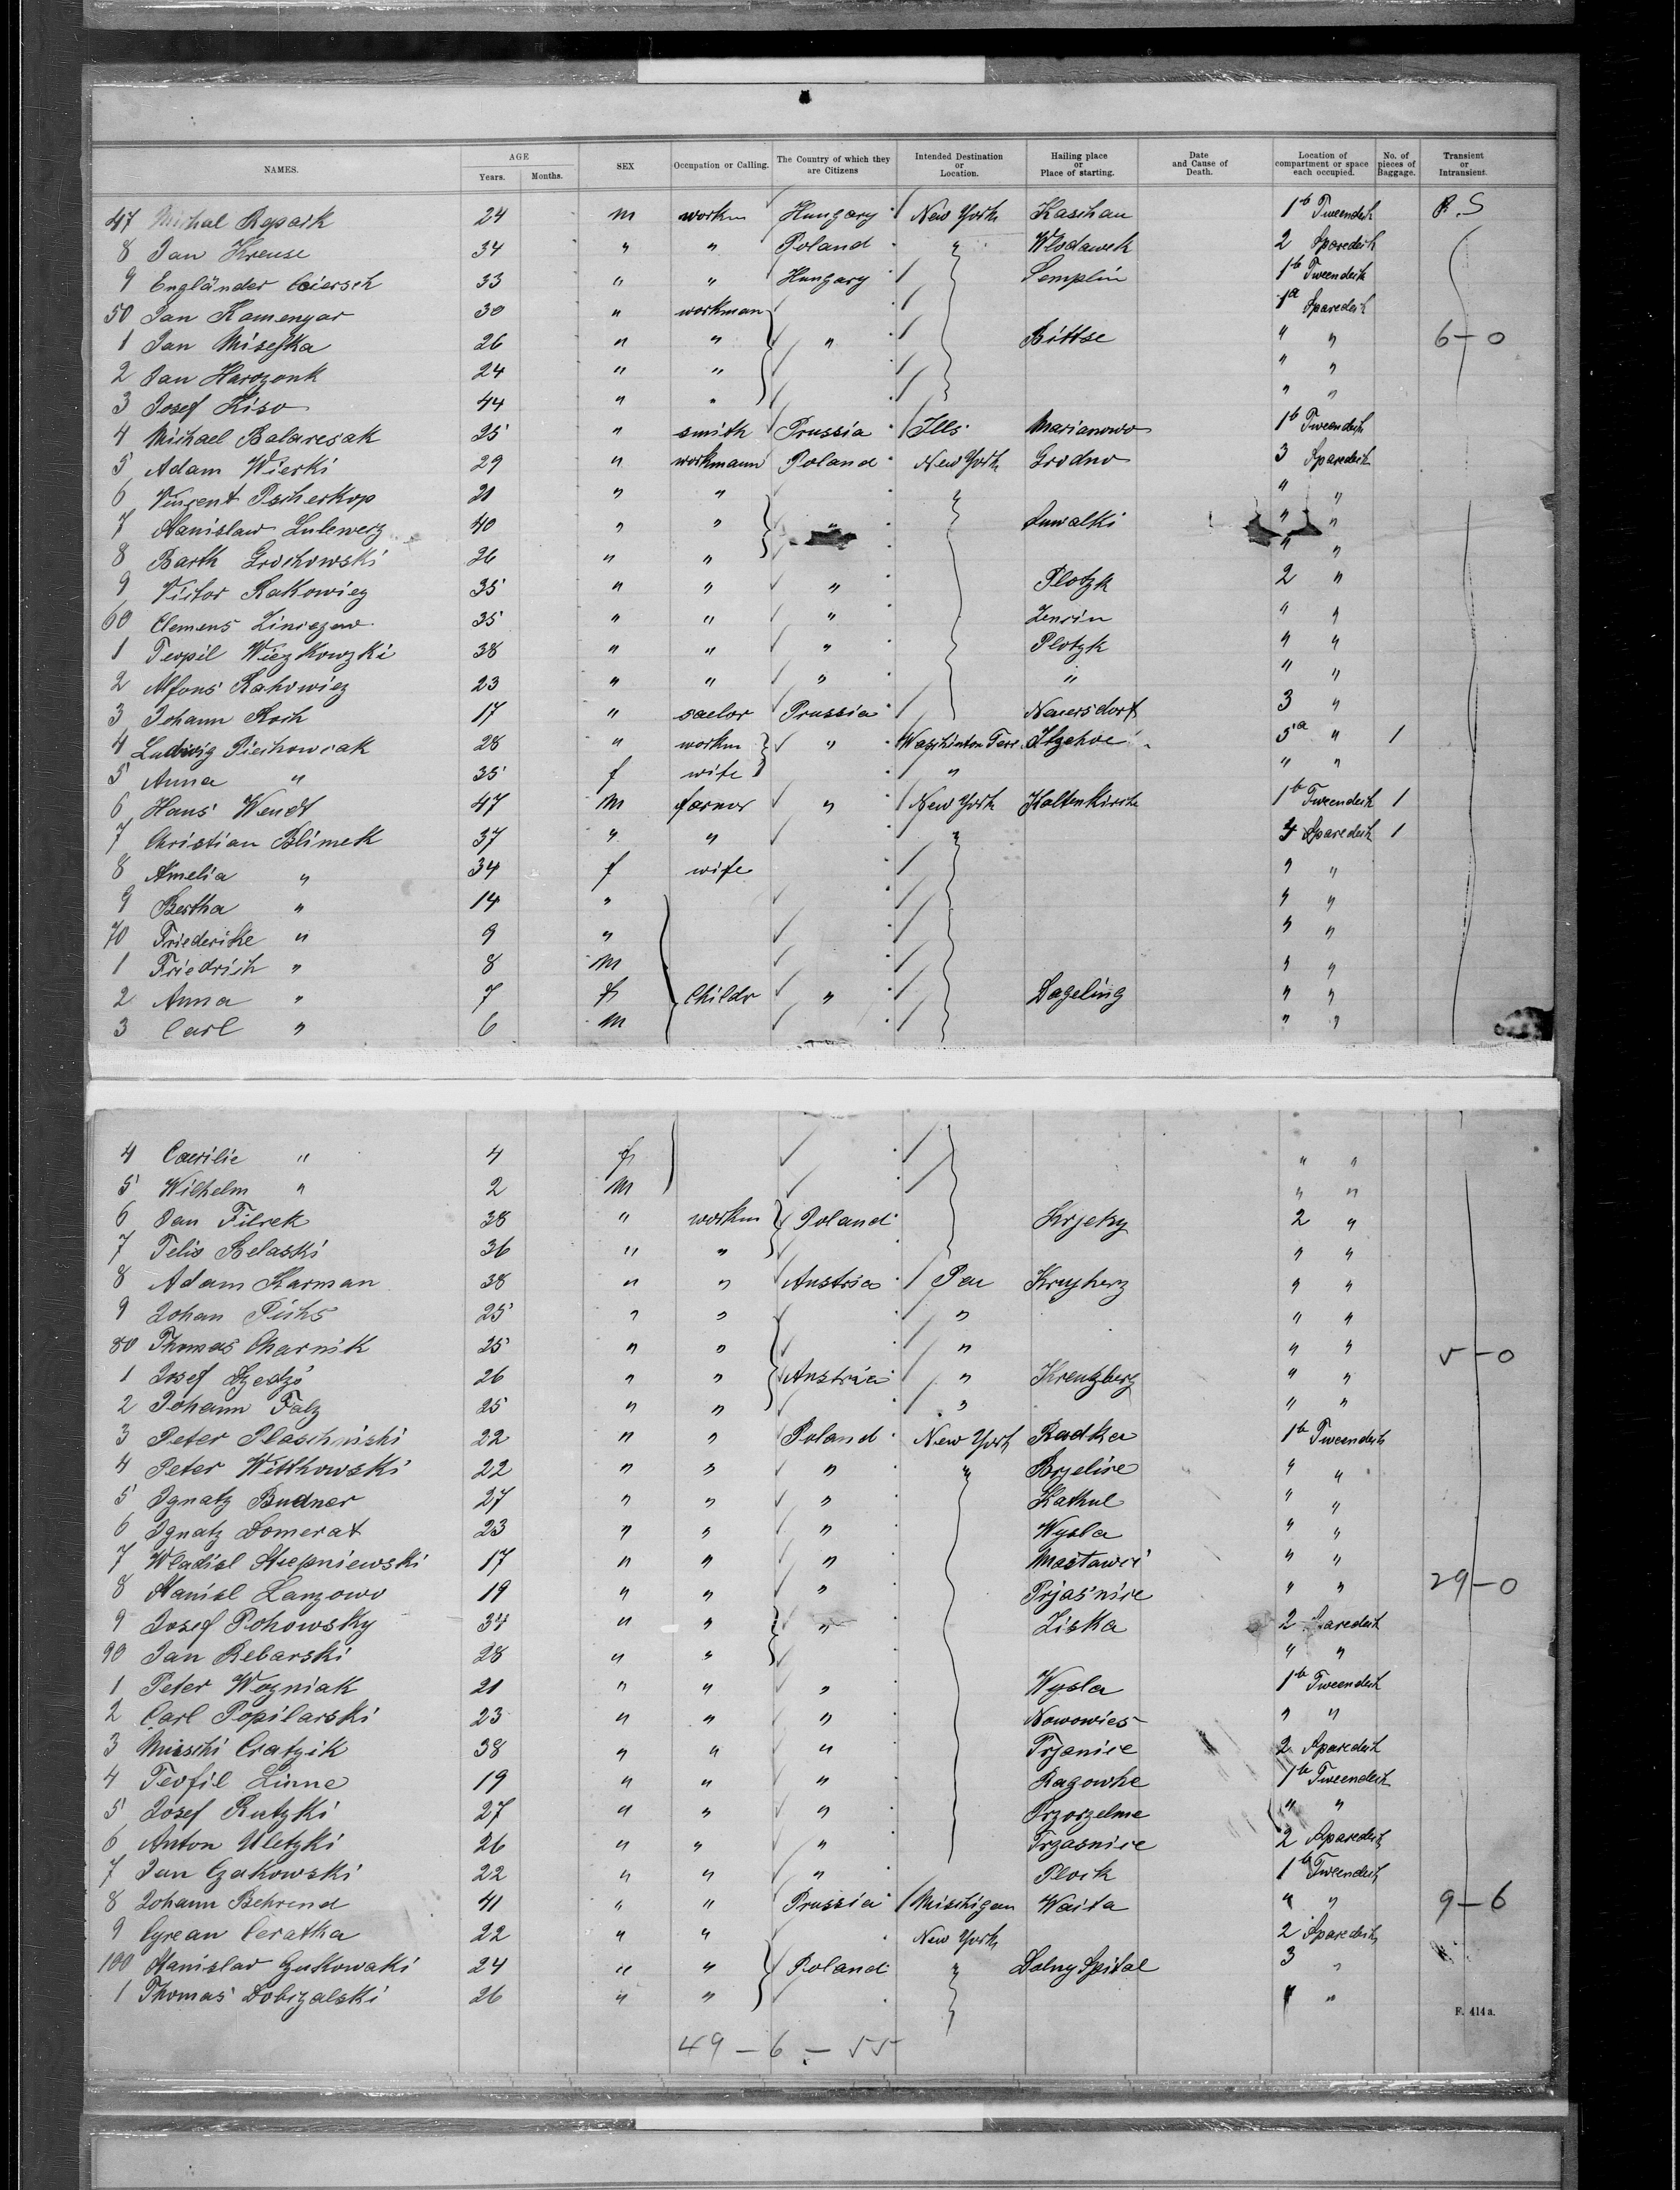 NAMES. AGE Years. Months. SEX Occupation or Calling. The Country of which they are Citizens Intended Destination or Location. Hailing place or Place of starting. Date and Cause of Death. Location of compartment or space each occupied. No. of pieces of Baggage. Transient or Intransient.
47 Michal Repask 24 m workm Hungary New York Kaschau 1b Tweendeck P.S
8 Jan Kreuse 34 " " Poland " Wlodawek 2 Sparedeck
9 Engländer 33 " " Hungary Semplin 1b Tweendeck
50 Jan Kamenyar 30 " workman 1a Sparedeck
1 Jan Misejka 26 " " " Bittse " " 6-0
2 Jan Harozonk 24 " " " "
3 Josef Kiso 44 " " " "
4 Michael Balaresak 25 " smith Prussia Ills Marianowo 1b Tweendeck
5 Adam Wierki 29 " workmann Poland New York Grodno 3 Sparedeck
6 Vinzent Pscherkop 21 " " " " "
7 Stanislaw Lulewerz 40 " " " Suwalki " "
8 Barth Grochowski 26 " " " "
9 Victor Rakowiez 35 " " " Plotzk 2 "
60 Clemens Liniezew 35 " " " Zenrin " "
1 Teopil Wiezkowzki 38 " " " Plotzk " "
2 Alfons Rakowiez 23 " " " " " "
3 Johann Koch 17 " saelor Prussia Neuersdorf 3 "
4 Ludwig Piechowcak 28 " workm " Waschinton Terr. Itzehoe 5a " 1
5 Anna " 35 f wife " " "
6 Hans Wendt 47 m farmer " New York Kaltenkirche 1b Tweendeck 1
7 Christian Klimek 37 " " " 4 Sparedeck 1
8 Amelia " 34 f wife " "
9 Bertha " 14 " " "
70 Friederike " 9 " " "
1 Friedrich " 8 m " "
2 Anna " 7 f Childr " Dageling " "
3 Carl " 6 m " "
4 Caecilie " 4 f " "
5 Wilhelm " 2 m " "
6 Jan Filrek 38 " workm Poland Krjeky 2 "
7 Felix Belaski 36 " " " "
8 Adam Karman 38 " " Austria Pa Kruyherz " "
9 Johan Pichs 25 " " " " "
80 Thomas Charnik 25 " " " " " 5-0
1 Josef Szedzo 26 " " Austria " Kreutzberg " "
2 Johann Falz 25 " " " " "
3 Peter Plaschniski 22 " " Poland New York Radka 1b Tweendeck
4 Peter Witthowski 22 " " " " Brjelise " "
5 Ignatz Budner 27 " " " Kathul " "
6 Ignatz Domerat 23 " " " Wysla " "
7 Wladisl Stupniewski 17 " " " Mastawic " "
8 Stanisl Lanzowo 19 " " " Prjasnice " " 29-0
9 Josef Pohowsky 34 " " " Ziska 2 Sparedeck
90 Jan Rebarski 28 " " " "
1 Peter Wozniak 21 " " " Wysla 1b Tweendeck
2 Carl Popilarski 23 " " " Nowowies " "
3 Misschi Cratzik 38 " " " Prjanice 2 Sparedeck
4 Teofil Linne 19 " " " Ragowke 1b Tweendeck
5 Josef Rutzki 27 " " " Przorzelme " "
6 Anton Uletzki 26 " " " Przasnice 2 Sparedeck
7 Jan Czakowski 22 " " " Plock 1b Tweendeck
8 Johann Behrend 41 " " Prussia Mischigan Waita " " 9-6
9 Cyrean Ceratka 22 " " New York 2 Sparedeck
100 Stanislav Gutkowaki 24 " " Poland " Dolny Spital 3 "
1 Thomas Dobrzalski 26 " " " "
F. 414a.
49-6-55